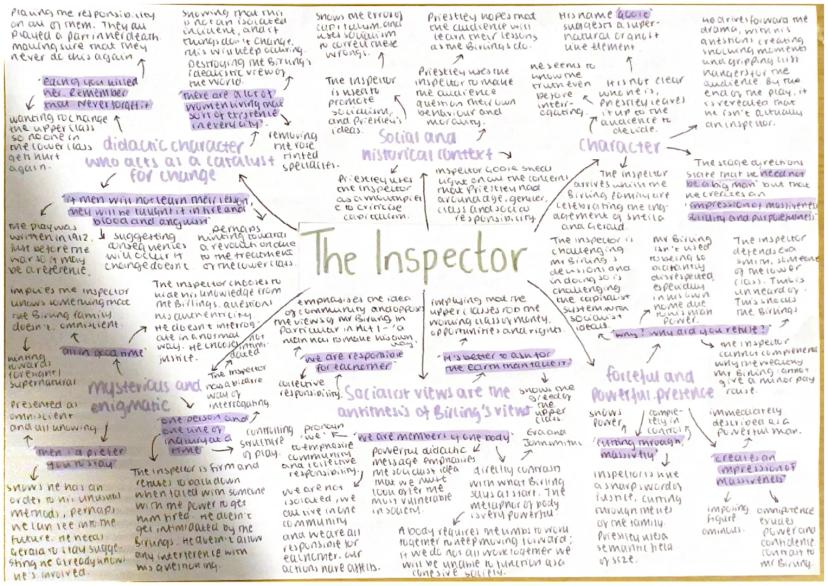 Placing the responsibility
on all of them. They all
played a part in her death
making sure that they
never do this again
Showing that this
is not an isolated
incident, and if
things don't change,
this will keep occuring.
Destroying the Birling's
idealistic view of
the world.
Shows the errors of
capitalism, and
uses socialism
to correct these
wrongs.
Priestley hopes that
the audience will
learn their lessons,
as the Birlings do.
His name 'Goole'
suggests a super-
natural or ghost
like element
He drives forward the
drama, with his
questions creating
shocking moments
and gripping cliff
hangers for the
audience. By the
end of the play, it
is revealed that
he isn't actually
an inspector.
each of you killed
her. Remember
that. Never forget it
'there are a lot of
women living that
sort of existence
in every city'
The Inspector
is used to
promote
socialism,
and Priestley's
ideas.
Priestley uses the
inspector to make
the audience
question their own
behaviour and
morality.
he seems to
know the
truth even
before
inter-
rogating.
It is not clear
who he is,
Priestley leaves
it up to the
audience to
decide.
wanting to change
the upper class
so no one in
the lower class
gets hurt
again.
didactic character
who acts as a catalyst
for change
removing
the rose
tinted
specticles.
Social and
historical context
character
Priestley uses
the inspector
as a mouthpiece
to criticise
capitalism.
Inspector Goole sheds
light on all the concerns
that Priestley had
around age, gender,
class and social
responsibility.
The inspector
arrives whilst the
Birling family are
celebrating the eng-
agement of Sheila
and Gerald.
The stage directions
state that he 'need not
be a big man' but that
he creates an
'impression of massiveness,
solidity and purposefulness'
'if men will not learn their lesson,
they will be taught it in fire and
blood and anguish'
the play was
written in 1912,
just before the
war so it may
be a reference.
suggesting
consequences
will occur if
change doesn't
perhaps
hinting towards
a revolution due
to the treatment
of the lower class.
The Inspector
The inspector is
challenging
Mr Birling's
decisions and
in doing so is
challenging
the capitalist
system with
socialist
ideas
Mr Birling
isn't used
to being so
blatantly
disrespected
especially
in his own
home due
to his man
power.
The inspector
defends Eva
Smith, someone
of the lower
class. This is
unheard of.
This shocks
the Birlings
implies the inspector
knows something that
the Birling family
doesn't. omniscient.
'all in good time'
hinting
toward
forefront/
supernatural
The inspector chooses to
hide his knowledge from
the Birlings, questions
his authenticity.
He doesn't interrog-
ate in a normal
way. He chooses
justice.
not
intimi-
dated
emphasises the idea
of community and opposes
the views of Mr Birling in
particular in Act 1 - 'a
man has to make his own
way'
we are responsible
for each other
collective
responsibility.
implying that the
upper classes rob the
working class of money,
opportunities and rights.
'it's better to ask for
the earth than take it.'
shows
the
greed of
the
upper
class
'Why? Why did you refuse?'
the inspector
cannot comprehend
why the wealthy
Mr Birling cannot
give a minor pay
raise.
mysterious and
enigmatic
The inspector
has a bizarre
way of
interrogating.
Presented as
omniscient
and all knowing.
'one person and
one line of
inquiry at a
time'
controlling
structure
of play.
Socialist views are the
antithesis of Birling's views
forceful and
powerful presence
shows
power
comple-
tely in
control
immediately
described as a
powerful man.
'cutting through
massively'
create an
impression of
massiveness'
imposing
figure
ominous.
omnipotence
exudes
power and
confidence
contrast to
Mr Birling
'then I'd prefer
you to stay'
shows he has an
order to his unusual
methods, perhaps
he can see into the
future. He needs
Gerald to stay sugge-
sting he already knows
he's involved.
The inspector is firm and
refuses to back down
when faced with someone
with the power to get
him fired. He doesn't
get intimidated by the
Birlings. He doesn't allow
any interference with
his questioning.
pronoun
'we' is used
to emphasise
community
and collective
responsibility.
we are not
isolated, we
all live in one
community
and we are all
responsible for
each other. our
actions have affects.
'we are members of one body'
powerful didactic
message emphasises
the socialist idea
that we must
look after the
most vulnerable
in society
directly contrasts
with what Birling
says at start. The
metaphor of body
is very powerful
A body requires the limbs to work
together to keep moving forward;
if we do not all work together we
will be unable to function as a
cohesive society.
inspector is like
a sharp sword of
justice, cutting
through the lies
of the family.
Priestley uses a
semantic field
of size.